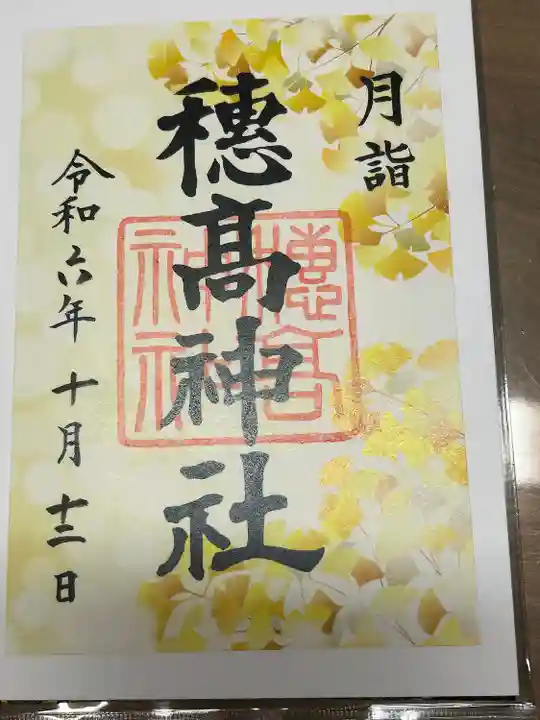 月詣
穗髙神社
穗高
神社
令和六年十月十二日